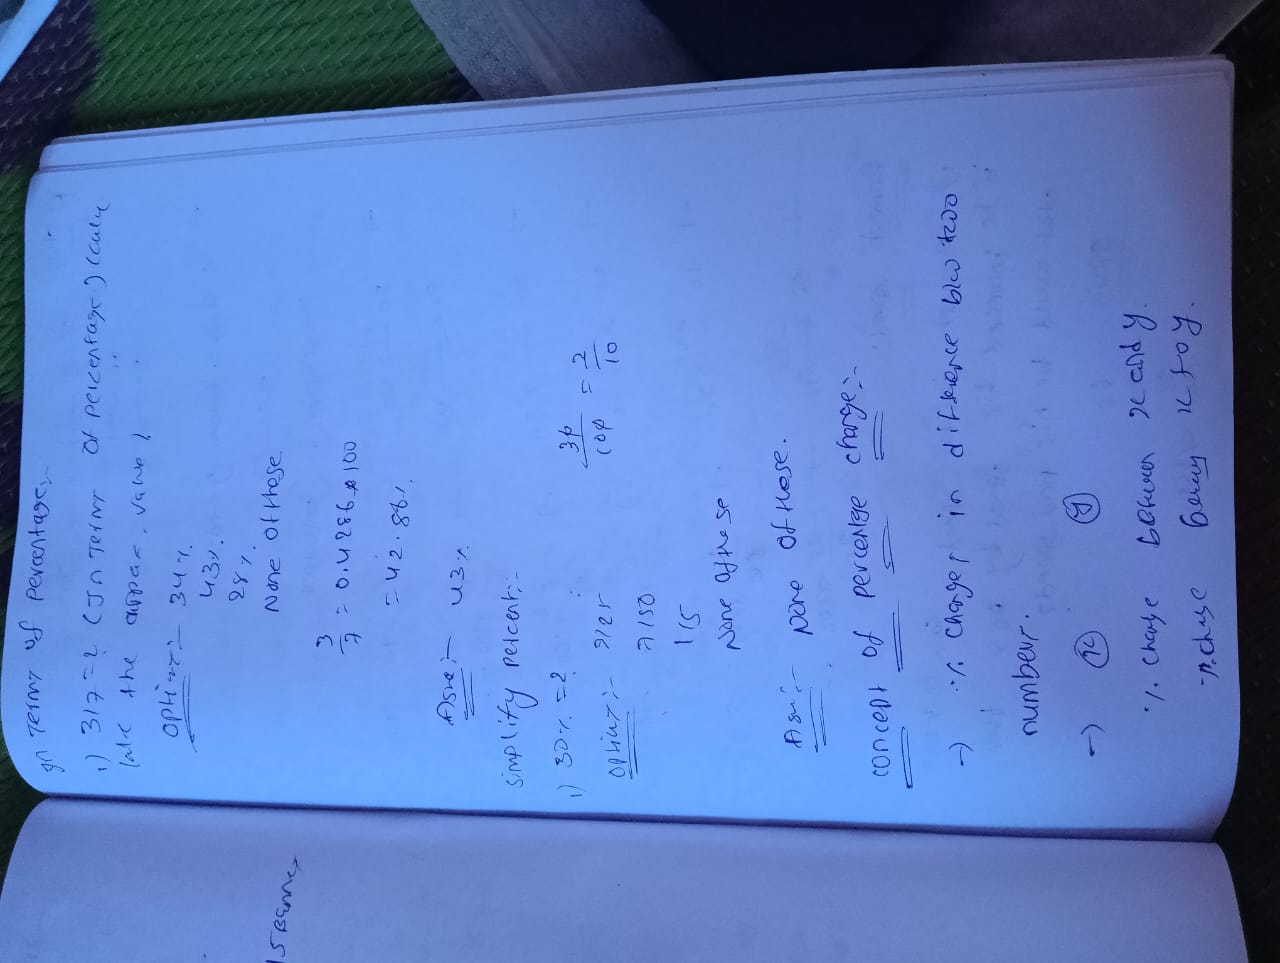 In Terms of percentage:-
1) 3/7 = ? (In Terms of percentage) (calcu
late the approx. value)
Options:- 34%.
43%.
28%.
None of those
3/7 = 0.4286 * 100
= 42.86%.
Ans:- 43%
Simplify percent:-
1) 30% = ? 30/100 = 2/10
Options:- 7/25
7/50
1/5
None of these
Ans:- None of those.
concept of percentge change:-
→ % Changes in difference b/w two
number.
→ (x) (y)
% change between x and y.
% change x to y.
15